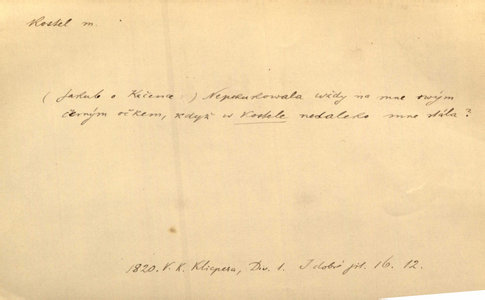 Kostel m.
( Jakub o Kačence ) Nepokukowala wždy na mne swým
černým očkem, když w Kostele nedaleko mne stála?
1820. V. K. Klicpera, Div. 1. I dobré jit. 16. 12.